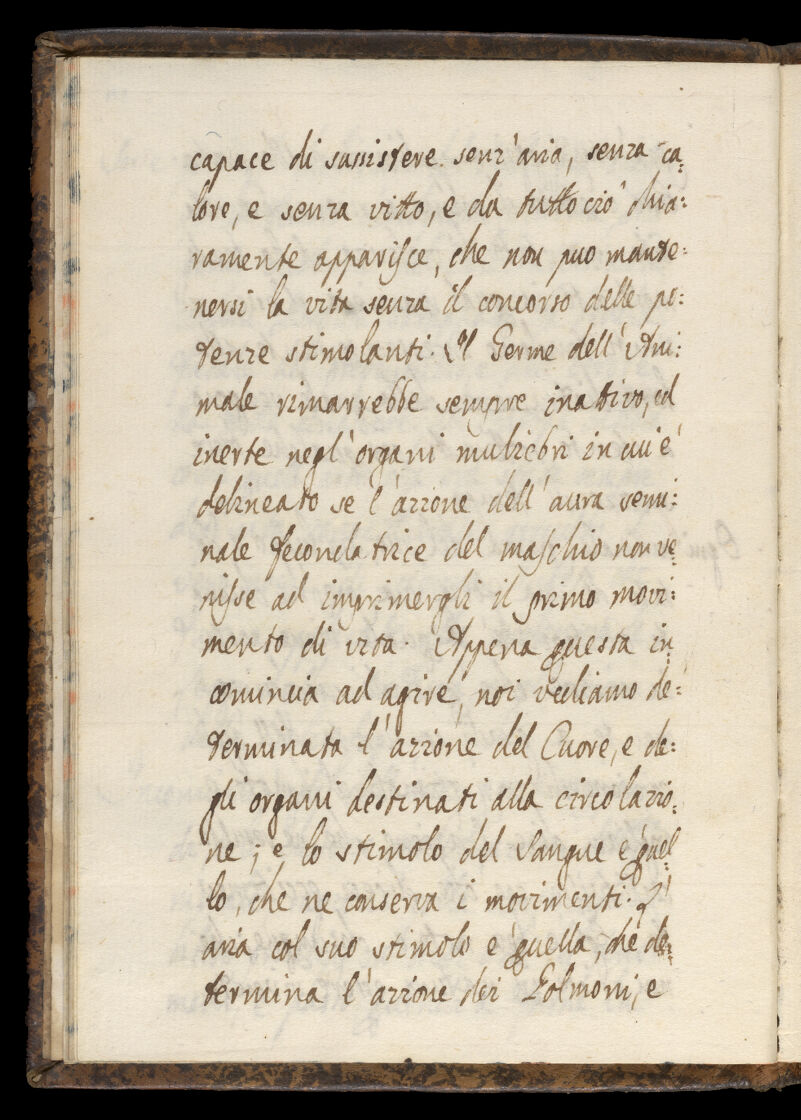 capace di sussistere. senz'aria, senza ca:
lore, e senza vitto, e da tutto ciò chia:
ramente apparisce, che non puo mante:
nersi la vita senza il concorso delle po:
tenze stimolanti. Il Germe dell'Ani:
male rimarrebbe sempre inattivo, ed
inerte negl'organi muliebri in cui è
delineato se l'azione dell'aura semi:
nale fecondatrice del maschio non ve:
nisse ad imprimergli il primo movi:
mento di vita. Appena questa in
comincia ad agire, noi vediamo de:
terminata l'azione del Cuore, e de:
gli organi destinati alla circolazio:
ne; e lo stimolo del Sangue è quel:
lo, che ne conserva i movimenti. L'
aria col suo stimolo è quella, che de:
termina l'azione dei Polmoni, e